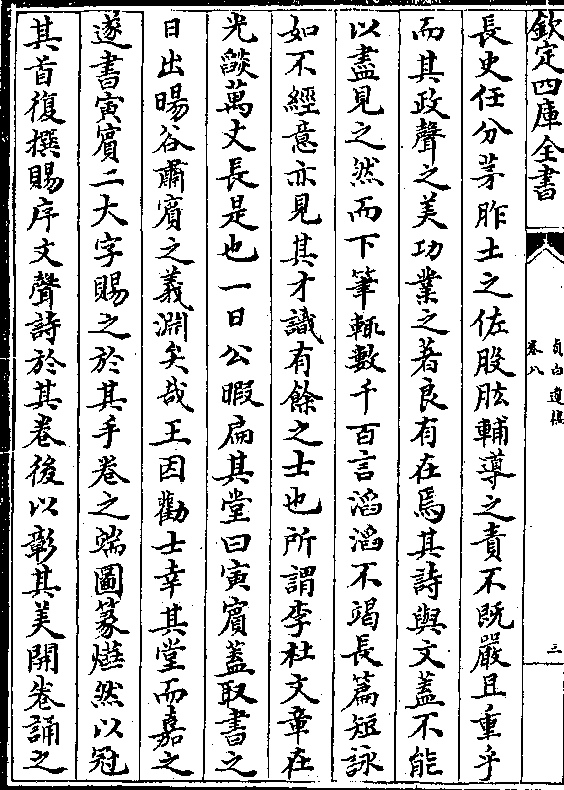 欽定四庫全書
貞白遺稿
卷八
三
長史任分茅胙土之佐股肱輔導之責不既嚴且重乎
而其政聲之美功業之著良有在焉其詩與文蓋不能
以盡見之然而下筆輒數千百言滔滔不竭長篇短詠
如不經意亦見其才識有餘之士也所謂李杜文章在
光燄萬丈長是也一日公暇扁其堂曰寅賓蓋取書之
日出暘谷肅賓之義淵矣哉王因勸士幸其堂而嘉之
遂書寅賓二大字賜之於其手卷之端圖篆爗然以冠
其首復撰賜序文聲詩於其卷後以彰其美開卷誦之